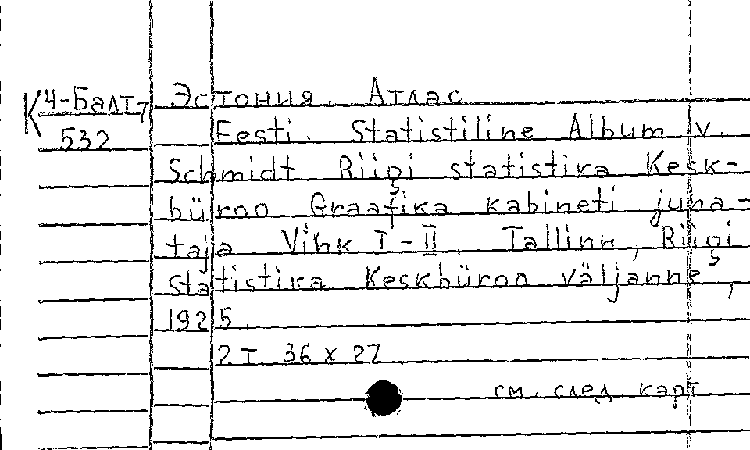 К 4-Балт-7
532
Эстония. Атлас
Eesti. Statistiline Album v.
Schmidt Riigi statistika Kesk-
büroo Graafika kabineti juha-
taja Vihk I-II. Tallinn, Riigi
statistika Keskbüroo väljanne,
1925.
2 т. 36 x 27
см. след карт